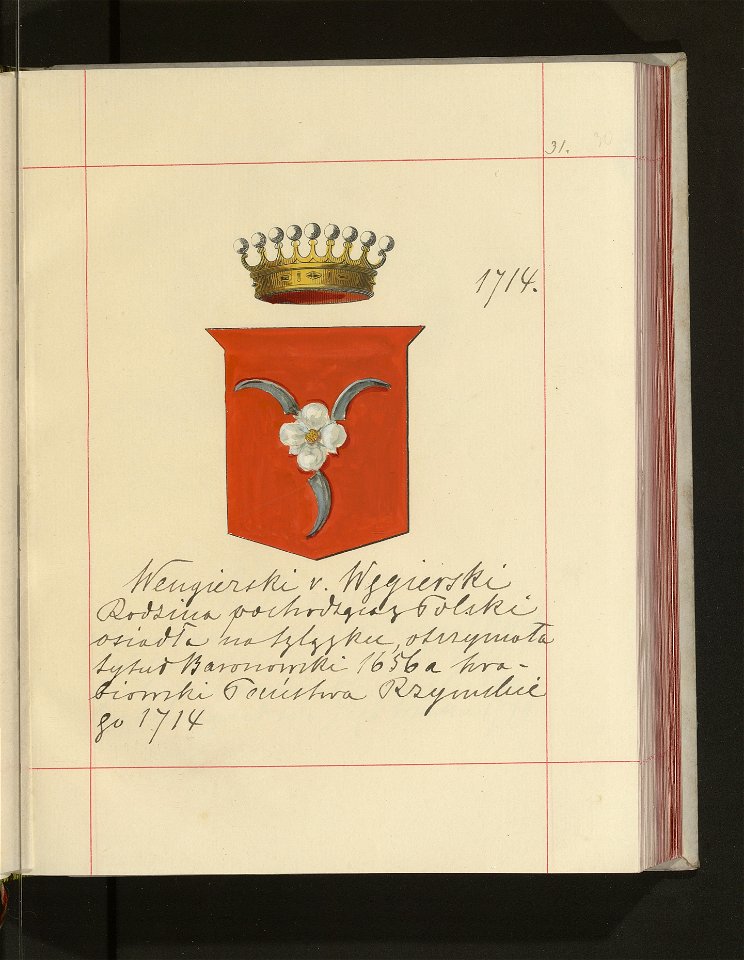 31. 30
1714.
Wengierski v. Węgierski
Rodzina pochodząca z Polski
osiadła na Szląsku, otrzymała
tytuł Baronowski 1656 a hra-
biowski Państwa Rzymskie
go 1714